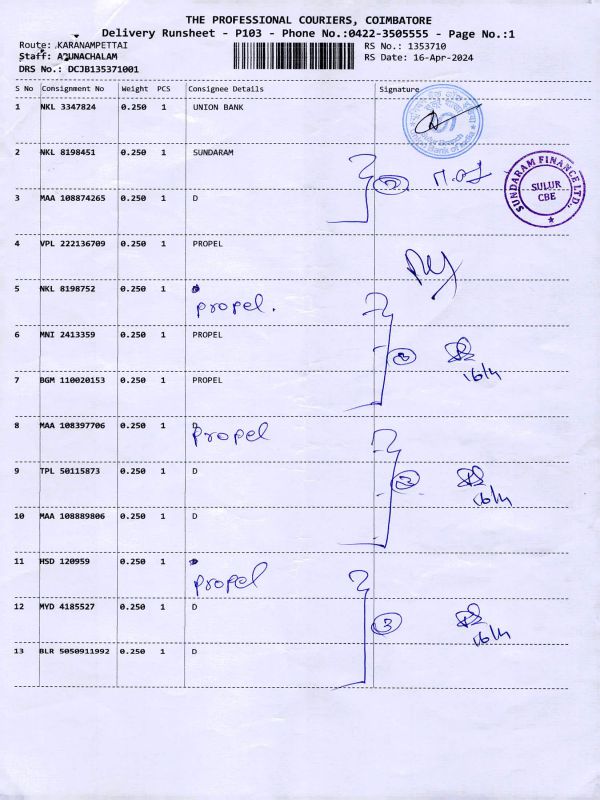 THE PROFESSIONAL COURIERS, COIMBATORE
Delivery Runsheet - P103 - Phone No.:0422-3505555 - Page No.:1
Route: KARANAMPETTAI
RS No.: 1353710
Staff: ARUNACHALAM
RS Date: 16-Apr-2024
DRS No.: DCJB135371001
S No Consignment No Weight PCS Consignee Details Signature
1 NKL 3347824 0.250 1 UNION BANK
2 NKL 8198451 0.250 1 SUNDARAM
SUNDARAM FINANCE LTD.,
SULUR
CBE
3 MAA 108874265 0.250 1 D
4 VPL 222136709 0.250 1 PROPEL
5 NKL 8198752 0.250 1
propel.
6 MNI 2413359 0.250 1 PROPEL
3
16/4
7 BGM 110020153 0.250 1 PROPEL
8 MAA 108397706 0.250 1 D
propel
9 TPL 50115873 0.250 1 D
16/4
10 MAA 108889806 0.250 1 D
11 HSD 120959 0.250 1
propel
12 MYD 4185527 0.250 1 D
3
16/4
13 BLR 5050911992 0.250 1 D